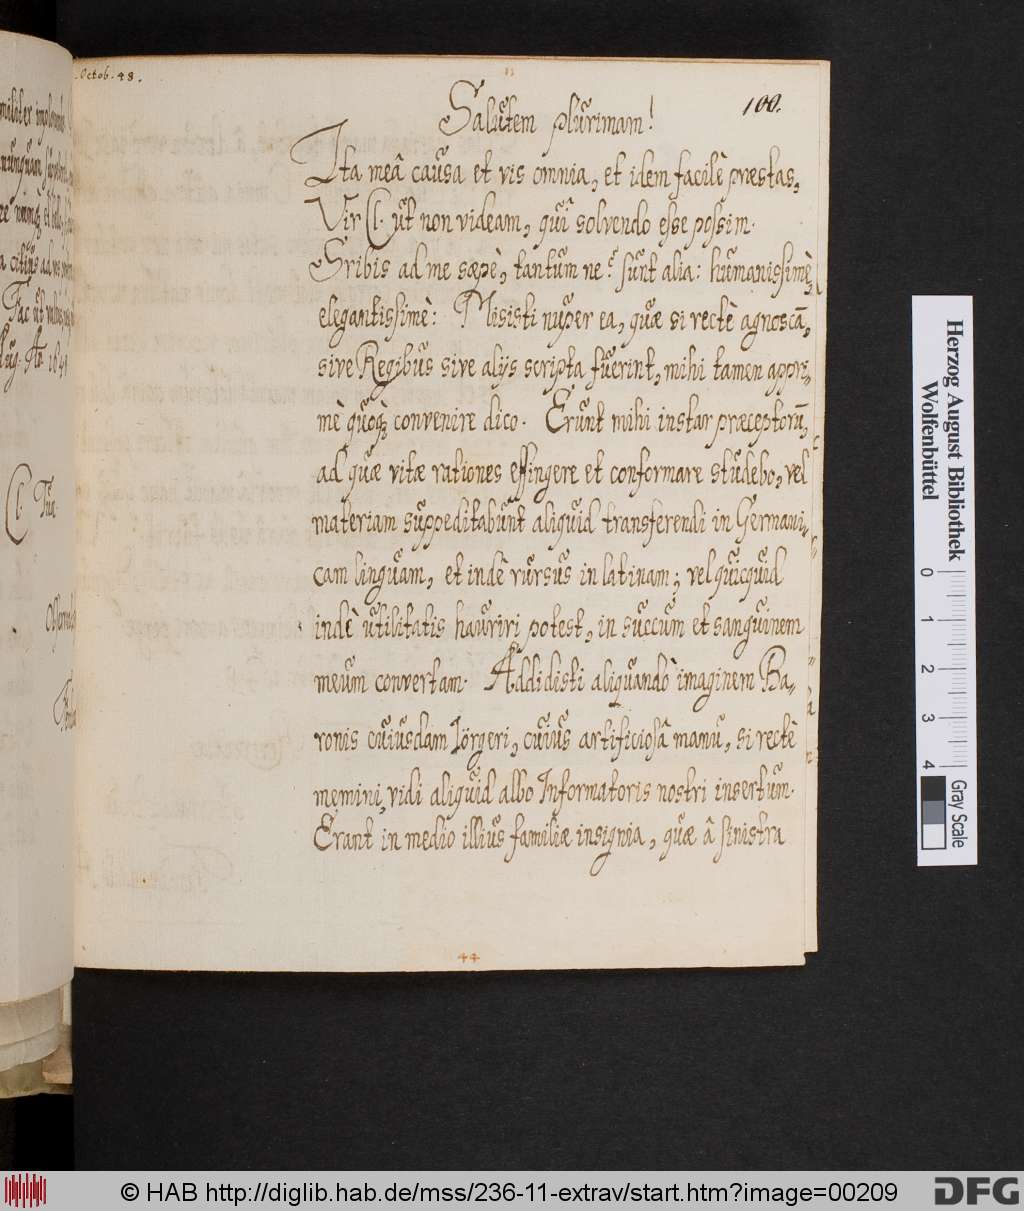 Octob. 48.
100.
Salutem plurimam!
Ita meâ causa et vis omnia, et idem facilè præstas,
Vir Cl. ut non videam, quî solvendo esse possim.
Sribis ad me sæpè, tantum ne? sunt alia: humanissimè,
elegantissimè: Misisti nuper ea, quæ si rectè agnoscā,
sive Regibus sive alijs scripta fuerint, mihi tamen appri-
mè quoq; convenire dico. Erunt mihi instar præceptorū,
ad quæ vitæ rationes effingere et conformare studebo, vel
materiam suppeditabunt aliquid transferendi in Germani-
cam linguam, et indè rursus in latinam; vel quicquid
indè utilitatis hauriri potest, in succum et sanguinem
meum convertam. Addidisti aliquandò imaginem Ba-
ronis cuiusdam Jörgeri, cuius artificiosâ manu, si rectè
memini, vidi aliquid albo Informatoris nostri insertum.
Erant in medio illius familiæ insignia, quæ â sinistra
44
Cl. Tuæ
Herzog August Bibliothek
Wolfenbüttel
0 1 2 3 4
Gray Scale
© HAB http://diglib.hab.de/mss/236-11-extrav/start.htm?image=00209
DFG